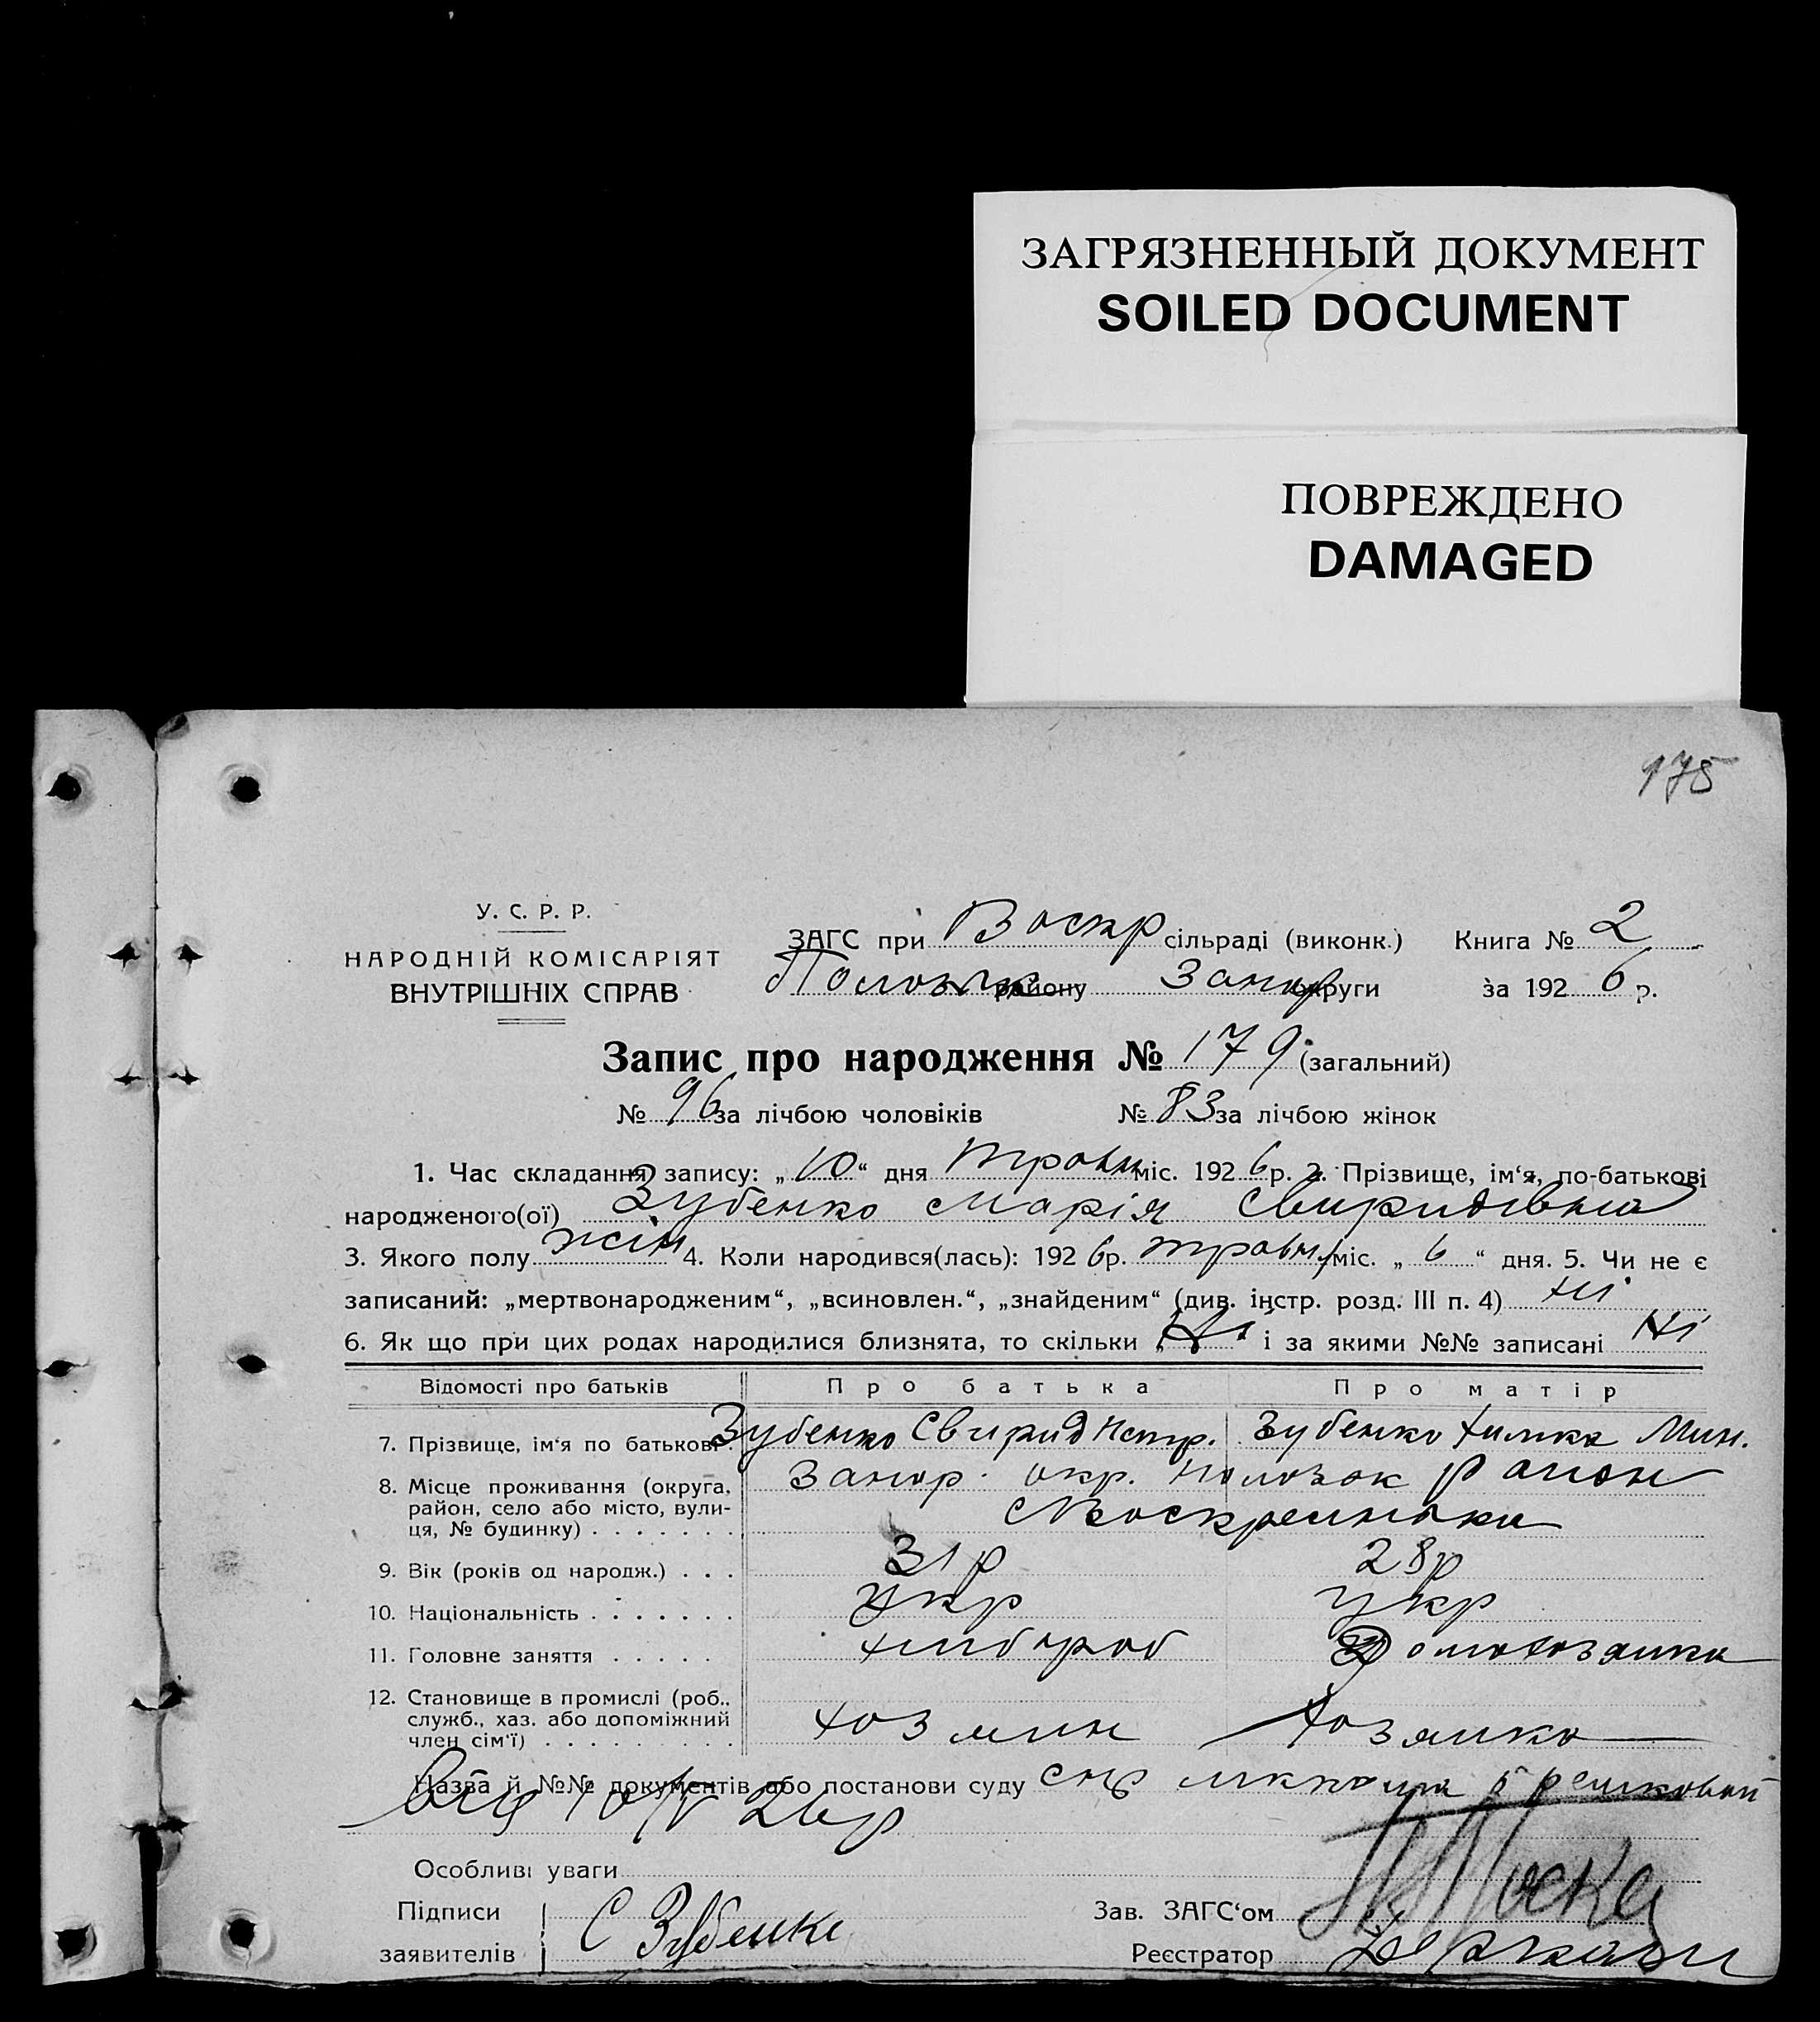 ЗАГРЯЗНЕННЫЙ ДОКУМЕНТ
SOILED DOCUMENT
ПОВРЕЖДЕНО
DAMAGED
175
У. С. Р. Р.
НАРОДНІЙ КОМІСАРІЯТ
ВНУТРІШНІХ СПРАВ
ЗАГС при Воскр сільраді (виконк.) Книга № 2
Пологк району Запор округи за 1926 р.
Запис про народження № 179 (загальний)
№ 96 за лічбою чоловіків № 83 за лічбою жінок
1. Час складання запису: „10“ дня травн міс. 1926 р. 2. Прізвище, ім‘я, по-батькові
народженого(ої) Зубенко Марія Свиридівна
3. Якого полу жін 4. Коли народився(лась): 1926 р. травн. міс. „6“ дня. 5. Чи не є
записаний: „мертвонародженим“, „всиновлен.“, „знайденим“ (див. інстр. розд. III п. 4) ні
6. Як що при цих родах народилися близнята, то скільки ні і за якими №№ записані ні
Відомості про батьків Про батька Про матір
7. Прізвище, ім‘я по батькові. Зубенко Свирид Петр. Зубенко Химка Мин.
8. Місце проживання (округа, Запор. окр. район
район, село або місто, вули-
ця, № будинку) . . . . . . . Воскресенька
9. Вік (років од народж.) . . . 31р 28р
10. Національність . . . . . . . укр укр
11. Головне заняття . . . . . хлібороб домохозяйка
12. Становище в промислі (роб.,
служб., хаз. або допоміжний
член сім‘ї) . . . . . . . . . хозяин хозяйка
Назва й №№ документів або постанови суду
від 10/V 26р
Особливі уваги
Підписи
заявителів С Зубенко
Зав. ЗАГС‘ом
Реєстратор